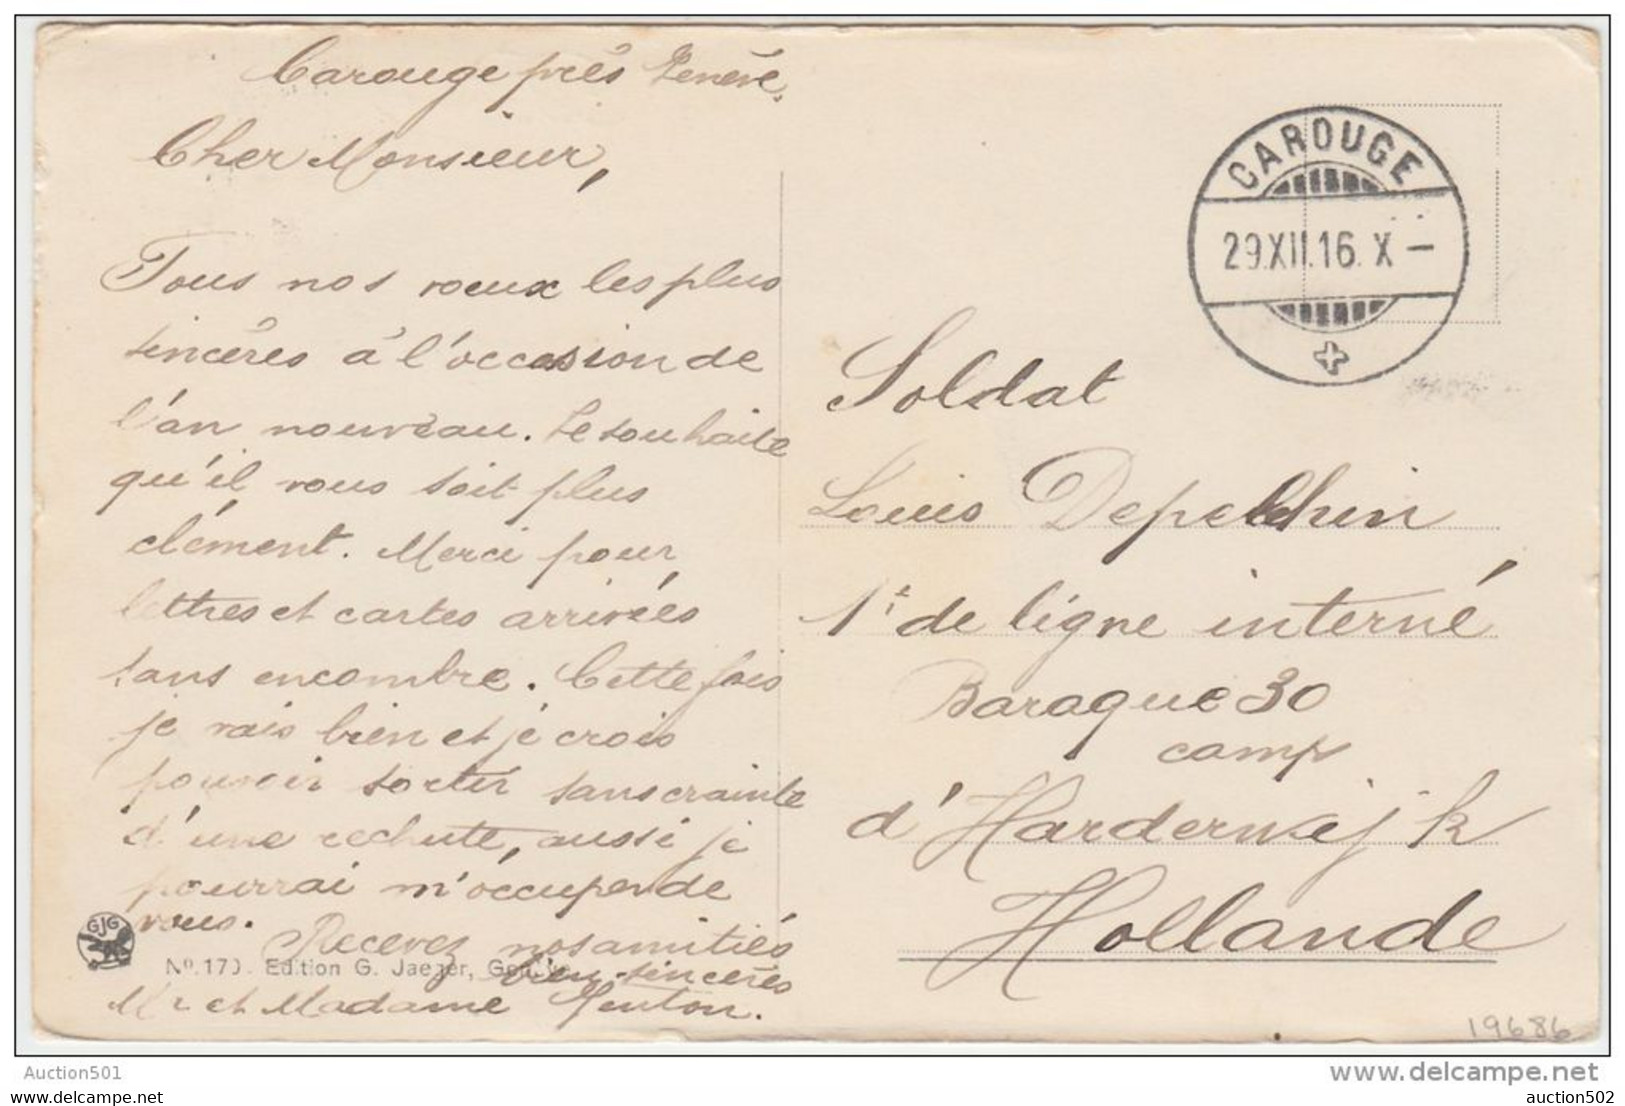 Carouge près Genève.
Cher Monsieur,
Tous nos voeux les plus
sincères à l'occasion de
l'an nouveau. Je souhaite
qu'il vous soit plus
clément. Merci pour
lettres et cartes arrivées
sans encombre. Cette fois
je vais bien et je crois
pouvoir sortir sans crainte
d'une rechute, aussi je
pourrai m'occuper de
vous.
Recevez nos amitiés
bien sincères
Mr et Madame
GJG
No. 170. Edition G. Jaeger, Genève
CAROUGE
29.XII.16. X –
Soldat
Louis Depelchin
1r de ligne interné
Baraque 30
camp
d'Harderwijk
Hollande
19686
Auction501
www.delcampe.net
auction502